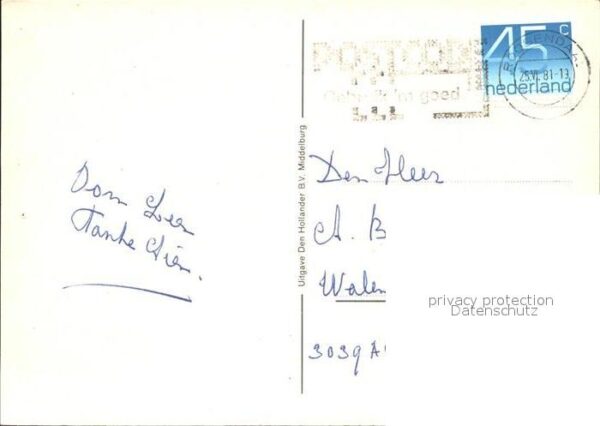 45 c
nederland
POSTCODE
Gebruik 'm goed
ROOSENDAAL
25.VI.81-13
Uitgave Den Hollander B.V. Middelburg
Den Heer
A. B
Walen
3039 A
Oom Leen
Tante Sien.
privacy protection
Datenschutz